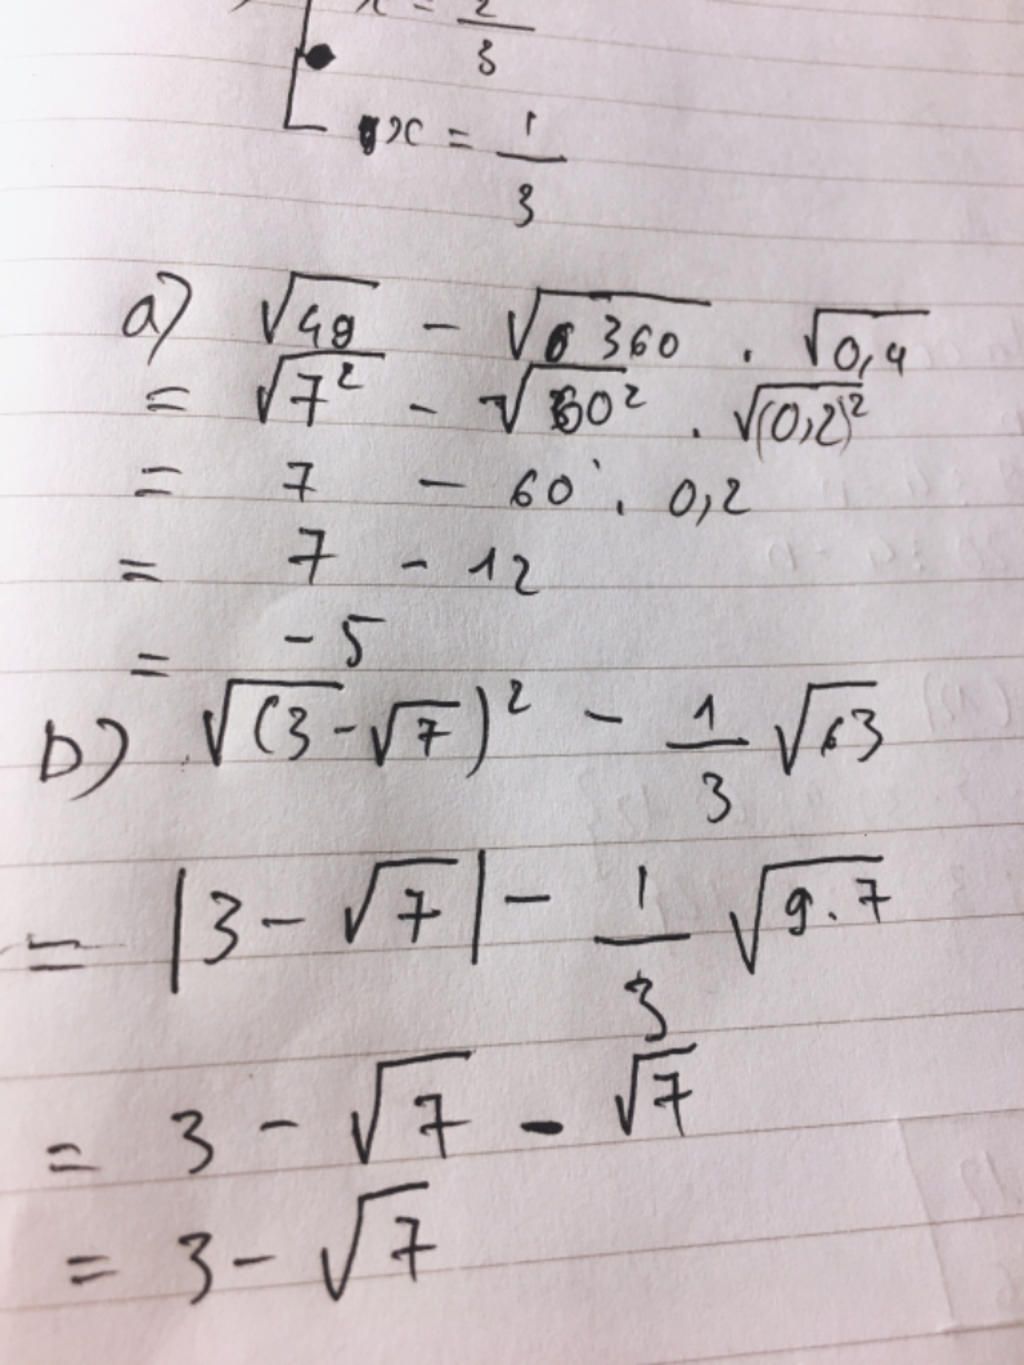 x = 2/3
x = 1/3
a) √49 - √360 . √0,4
= √7² - √60² . √(0,2)²
= 7 - 60 . 0,2
= 7 - 12
= -5
b) √(3-√7)² - 1/3 √63
= |3-√7| - 1/3 √9.7
= 3 - √7 - √7
= 3 - √7